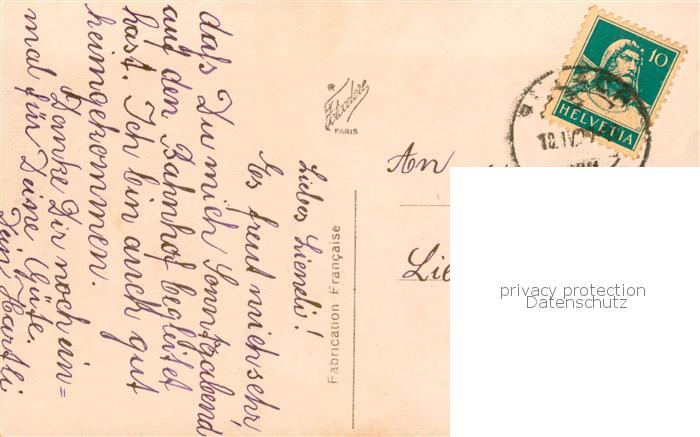 Liebes Lieneli!
Es freut mich sehr
dass Du mich Sonntgabend
auf den Bahnhof begleitet
hast. Ich bin auch gut
heimgekommen.
Danke Dir noch ein=
mal für Deine Güte.
Dein Hartli
PARIS
Fabrication Française
An
10
HELVETIA
privacy protection
Datenschutz